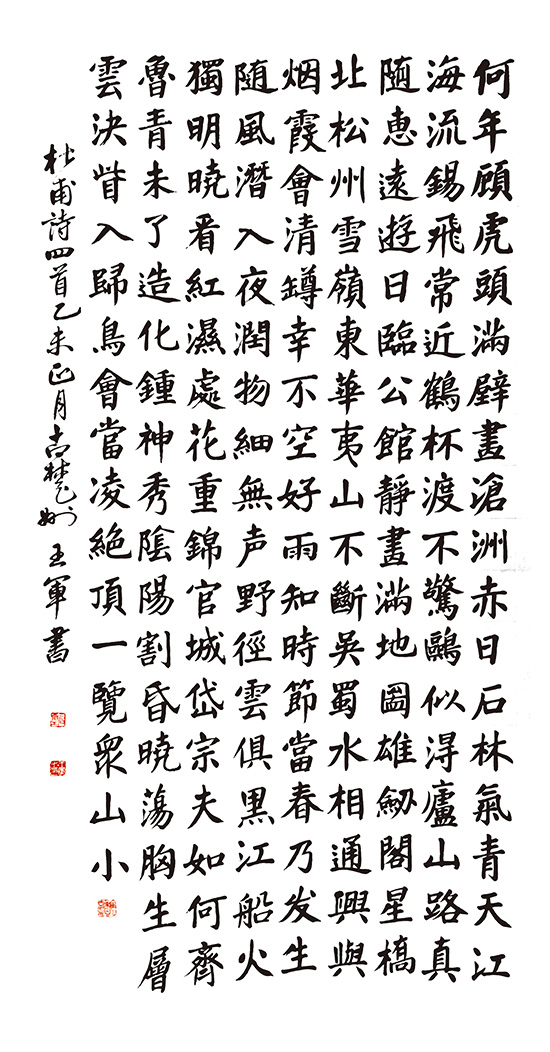 何年顧虎頭滿壁畫滄洲赤日石林氣青天江
海流錫飛常近鶴杯渡不驚鷗似得廬山路真
随惠遠遊日臨公館靜畫滿地圖雄劒閣星橋
北松州雪嶺東華夷山不斷吳蜀水相通興與
烟霞會清罇幸不空好雨知時節當春乃发生
随風潛入夜潤物細無声野徑雲俱黑江船火
獨明曉看紅濕處花重錦官城岱宗夫如何齊
魯青未了造化鍾神秀陰陽割昏曉蕩胸生層
雲決眥入歸鳥會當凌絕頂一覽衆山小
杜甫詩四首乙未正月古楚州王軍書